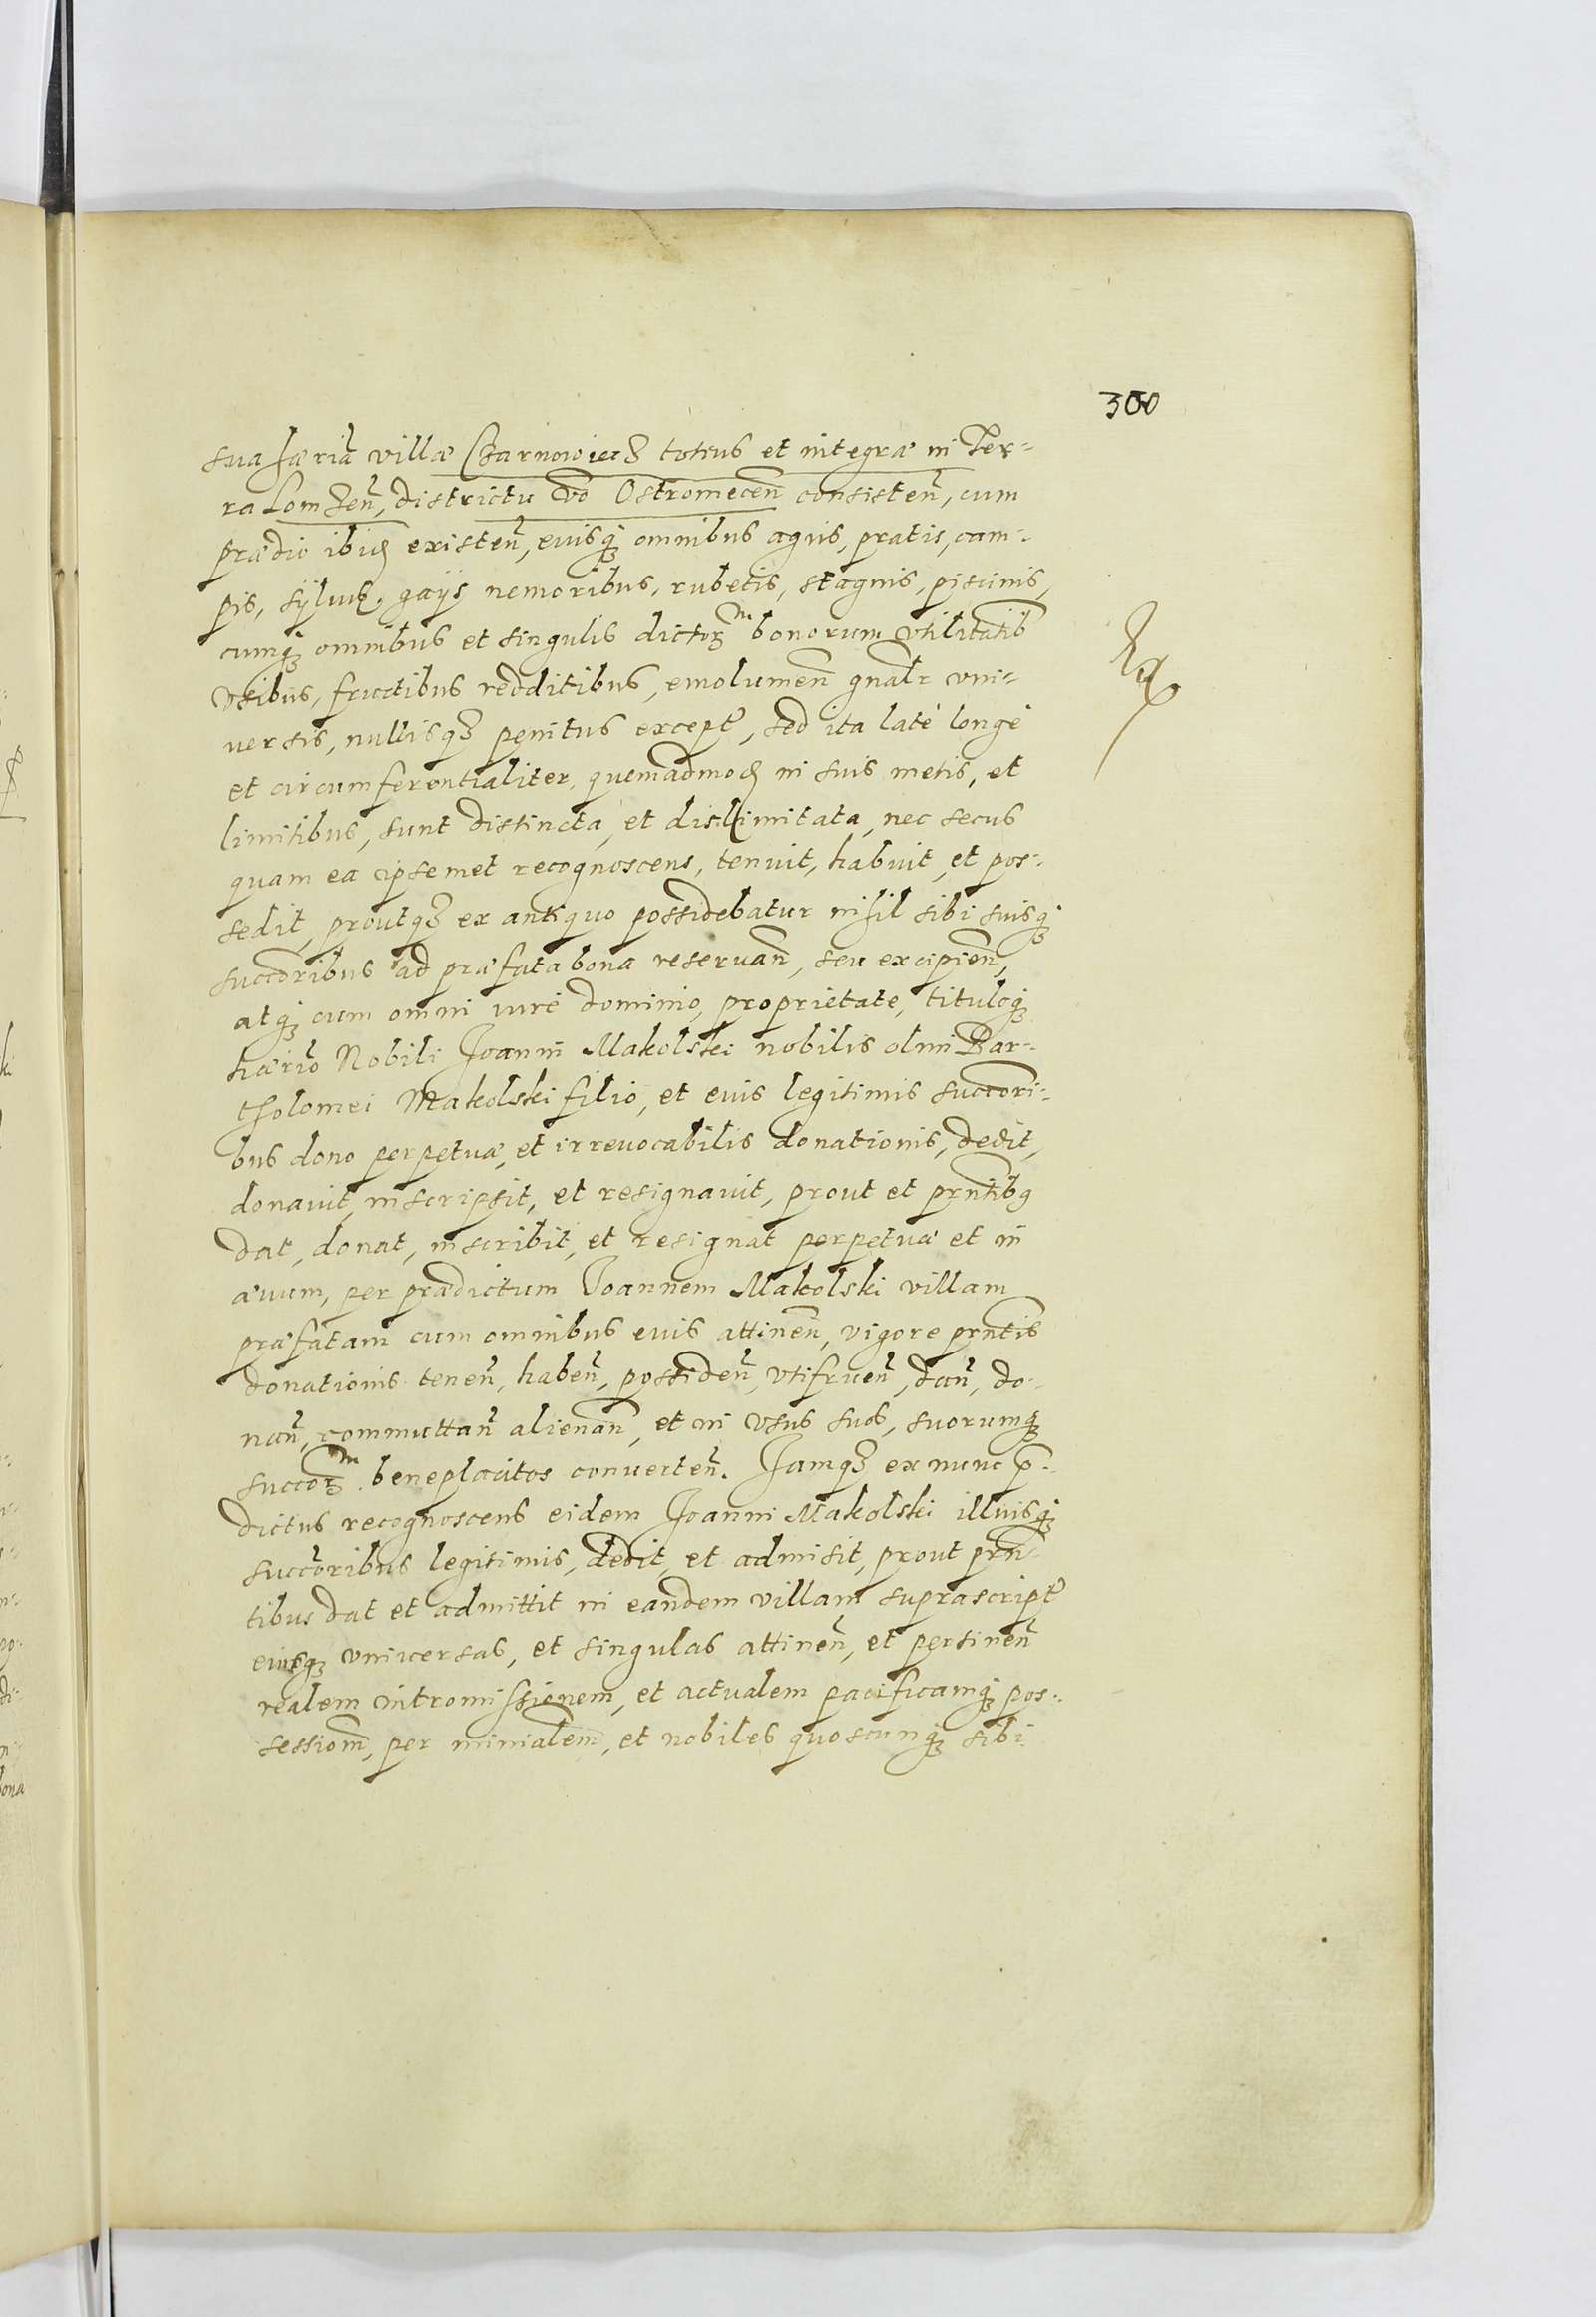 300
sua hæria villæ Czarnowiecz totius et integræ in Ter-
ra Lomzen, districtu vo Ostromecen consisten, cum
prædio ibid existen, euisq omnibus agris, pratis, cam-
pis, sÿluis, gaÿs nemoribus, rubetis, stagnis, piscinis,
cumq omnibus et singulis dictorum bonorum vtilitatib
vsibus, fructibus redditibus, emolumen gnalr vni-
uersis, nullisq penitus except, sed ita latè longè
et circumferentialiter, quemadmod in suis metis, et
limitibus, sunt distincta, et dislimitata, nec secus
quam ea ipsemet recognoscens, tenuit, habuit, et pos-
sedit, proutq ex antiquo possidebatur nihil sibi suisq
succoribus ad præfata bona reseruan, seu excipien,
atq cum omni iurè dominio, proprietate, tituloq
hærio Nobili Joanni Makolski nobilis olim Bar-
tholomei Makolski filio, et euis legitimis succori-
bus dono perpetuæ, et irreuocabilis donationis, dedit,
donauit, inscripsit, et resignauit, prout et prntibq
dat, donat, inscribit, et resignat perpetuæ et in
æuum, per prædictum Joannem Makolski villam
præfatam cum omnibus euis attinen, vigore prntis
donationis tenen, haben, possiden, vtifruen, dan, do-
nan, commuttan alienan, et in vsus suos, suorumq
succorum beneplacitos conuerten. Jamq ex nunc p-
dictus recognoscens eidem Joanni Makolski illuisq
succoribus legitimis, dedit, et admisit, prout prn-
tibus dat et admittit in eandem villam suprascript
eiusq vniuersas, et singulas attinen, et pertinen
realem intromissionem, et actualem pacificamq pos-
sessiom, per minialem, et nobiles quoscunq sibi